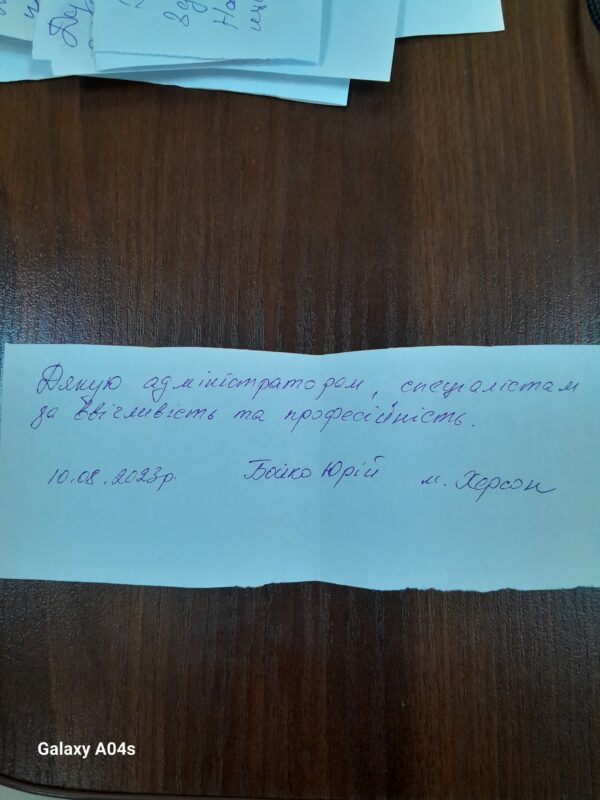 Дякую адміністраторам, спеціалістам
за ввічливість та професійність.
10.08.2023р. Бойко Юрій м. Херсон
Galaxy A04s